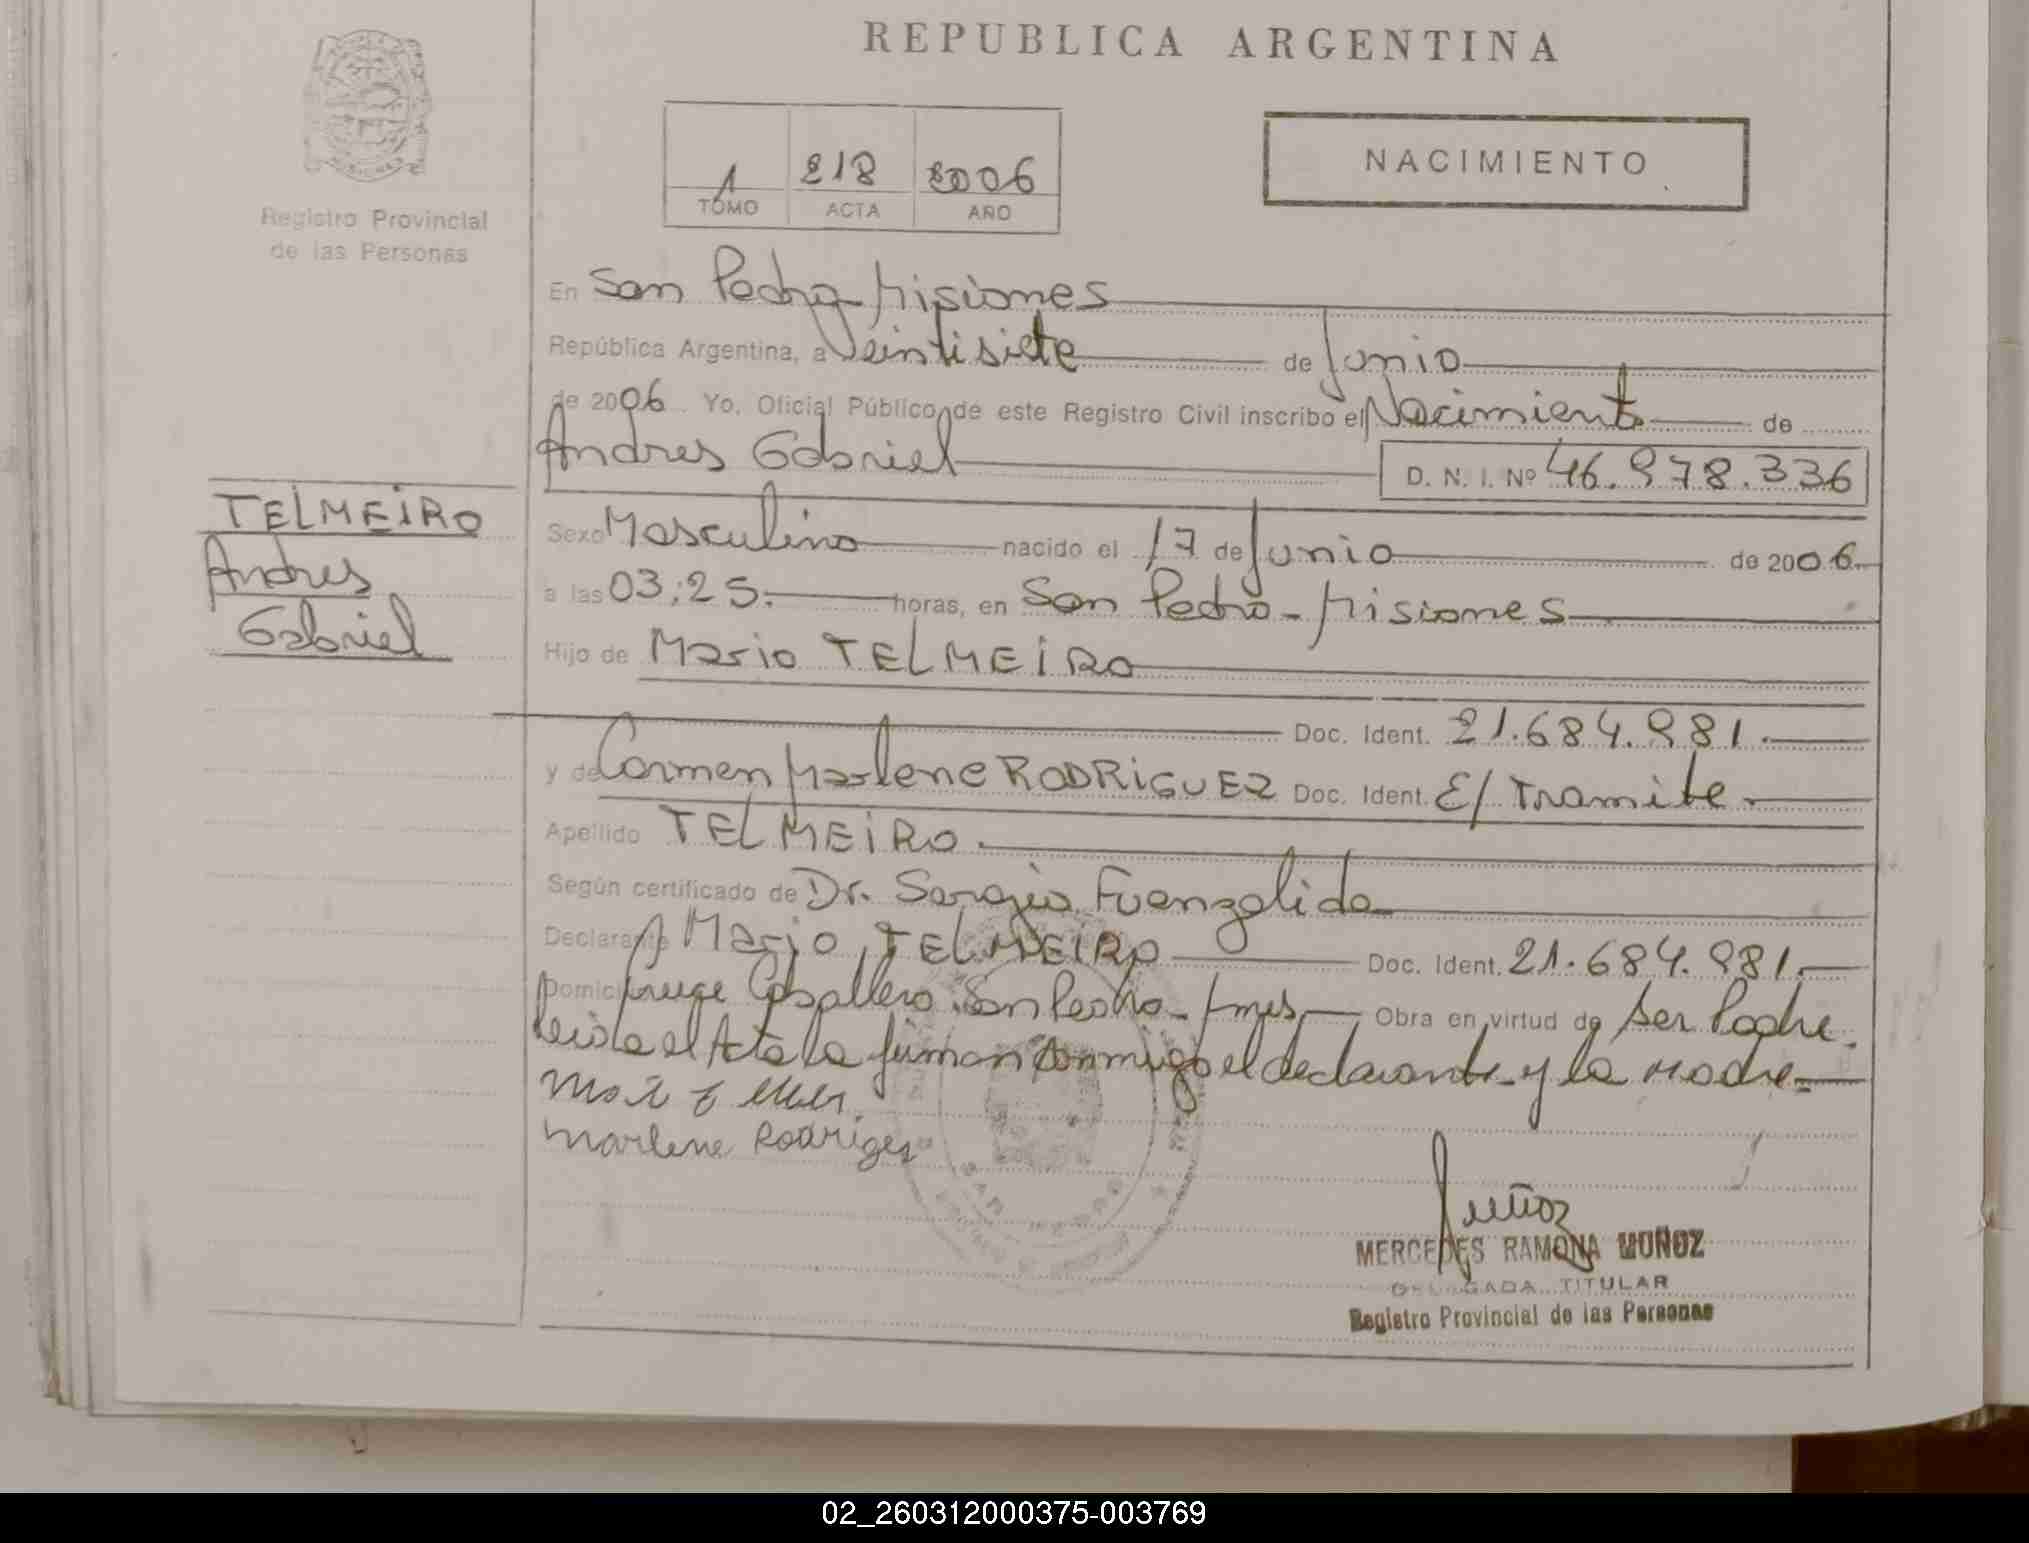 REPUBLICA ARGENTINA
Registro Provincial
de las Personas
1 218 2006
TOMO ACTA AÑO
NACIMIENTO
En San Pedro-Misiones
República Argentina, a Veintisiete de Junio
de 2006 Yo, Oficial Público de este Registro Civil inscribo el Nacimiento de
Andres Gabriel D. N. I. Nº 46.978.336
TELMEIRO
Andres
Gabriel
Sexo Masculino nacido el 17 de Junio de 2006.
a las 03:25. horas, en San Pedro-Misiones
Hijo de Mario TELMEIRO
Doc. Ident. 21.684.981.
y de Carmen Marlene RODRIGUEZ Doc. Ident. E/ Tramite.
Apellido TELMEIRO.
Según certificado de Dr. Sergio Fuenzalida
Declarante Mario TELMEIRO Doc. Ident. 21.684.981.
Domicilio Cruce Caballero San Pedro-Mnes Obra en virtud de ser Padre.
leida el Acta la firman conmigo el declarante y la Madre=
Marlene Rodriges
SAN PEDRO
Muñoz
MERCEDES RAMONA MUÑOZ
DELEGADA TITULAR
Registro Provincial de las Personas
02_260312000375-003769